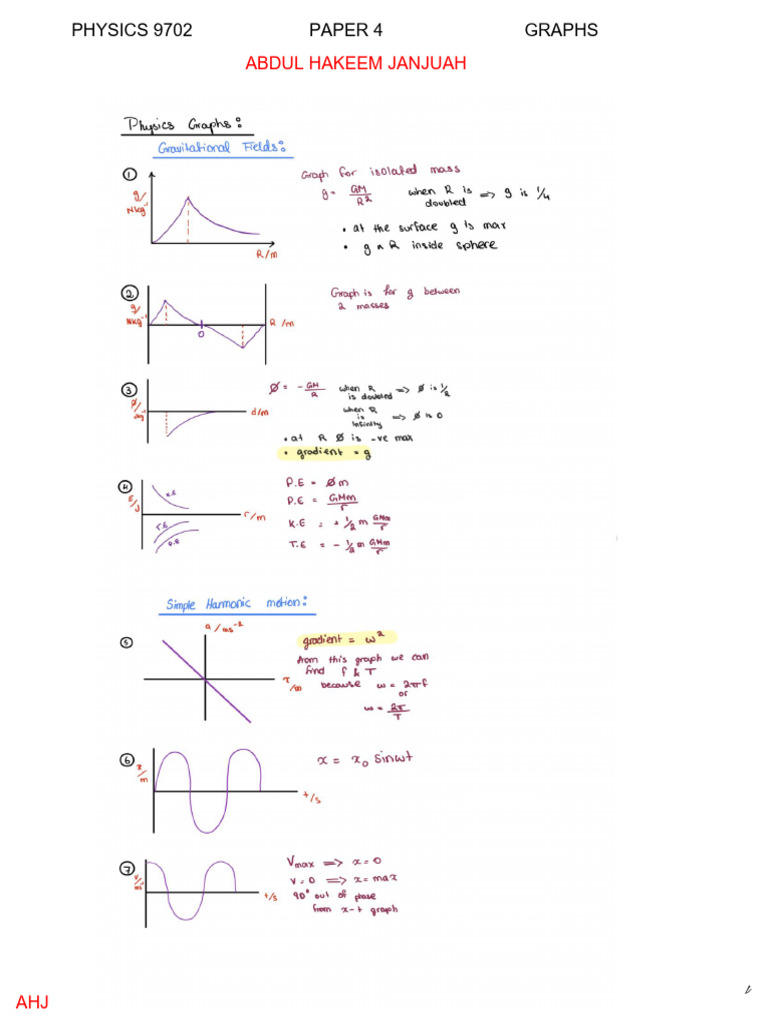 PHYSICS 9702 PAPER 4 GRAPHS
ABDUL HAKEEM JANJUAH
Physics Graphs:
Gravitational Fields:
1
g/
Nkg⁻¹
R/m
Graph for isolated mass
g = GM/R² when R is doubled ⟹ g is 1/4
• at the surface g is max
• g ∝ R inside sphere
2
g/
Nkg⁻¹
R/m
0
Graph is for g between
2 masses
3
Ø/
Jkg⁻¹
d/m
Ø = - GM/R when R is doubled => Ø is 1/2
when R is infinity => Ø is 0
• at R Ø is -ve max
• gradient = g
4
E/J
r/m
K.E
T.E
P.E
P.E = Øm
P.E = GMm/r
K.E = + 1/2 m GMm/r
T.E = - 1/2 m GMm/r
Simple Harmonic motion:
5
a/ms⁻²
/m
gradient = w²
from this graph we can
find f & T
because w = 2πf
or
w = 2π/T
6
x/m
t/s
x = x₀ sinwt
7
v/
ms⁻¹
t/s
Vmax => x = 0
v = 0 => x = max
90° out of phase
from x-t graph
AHJ